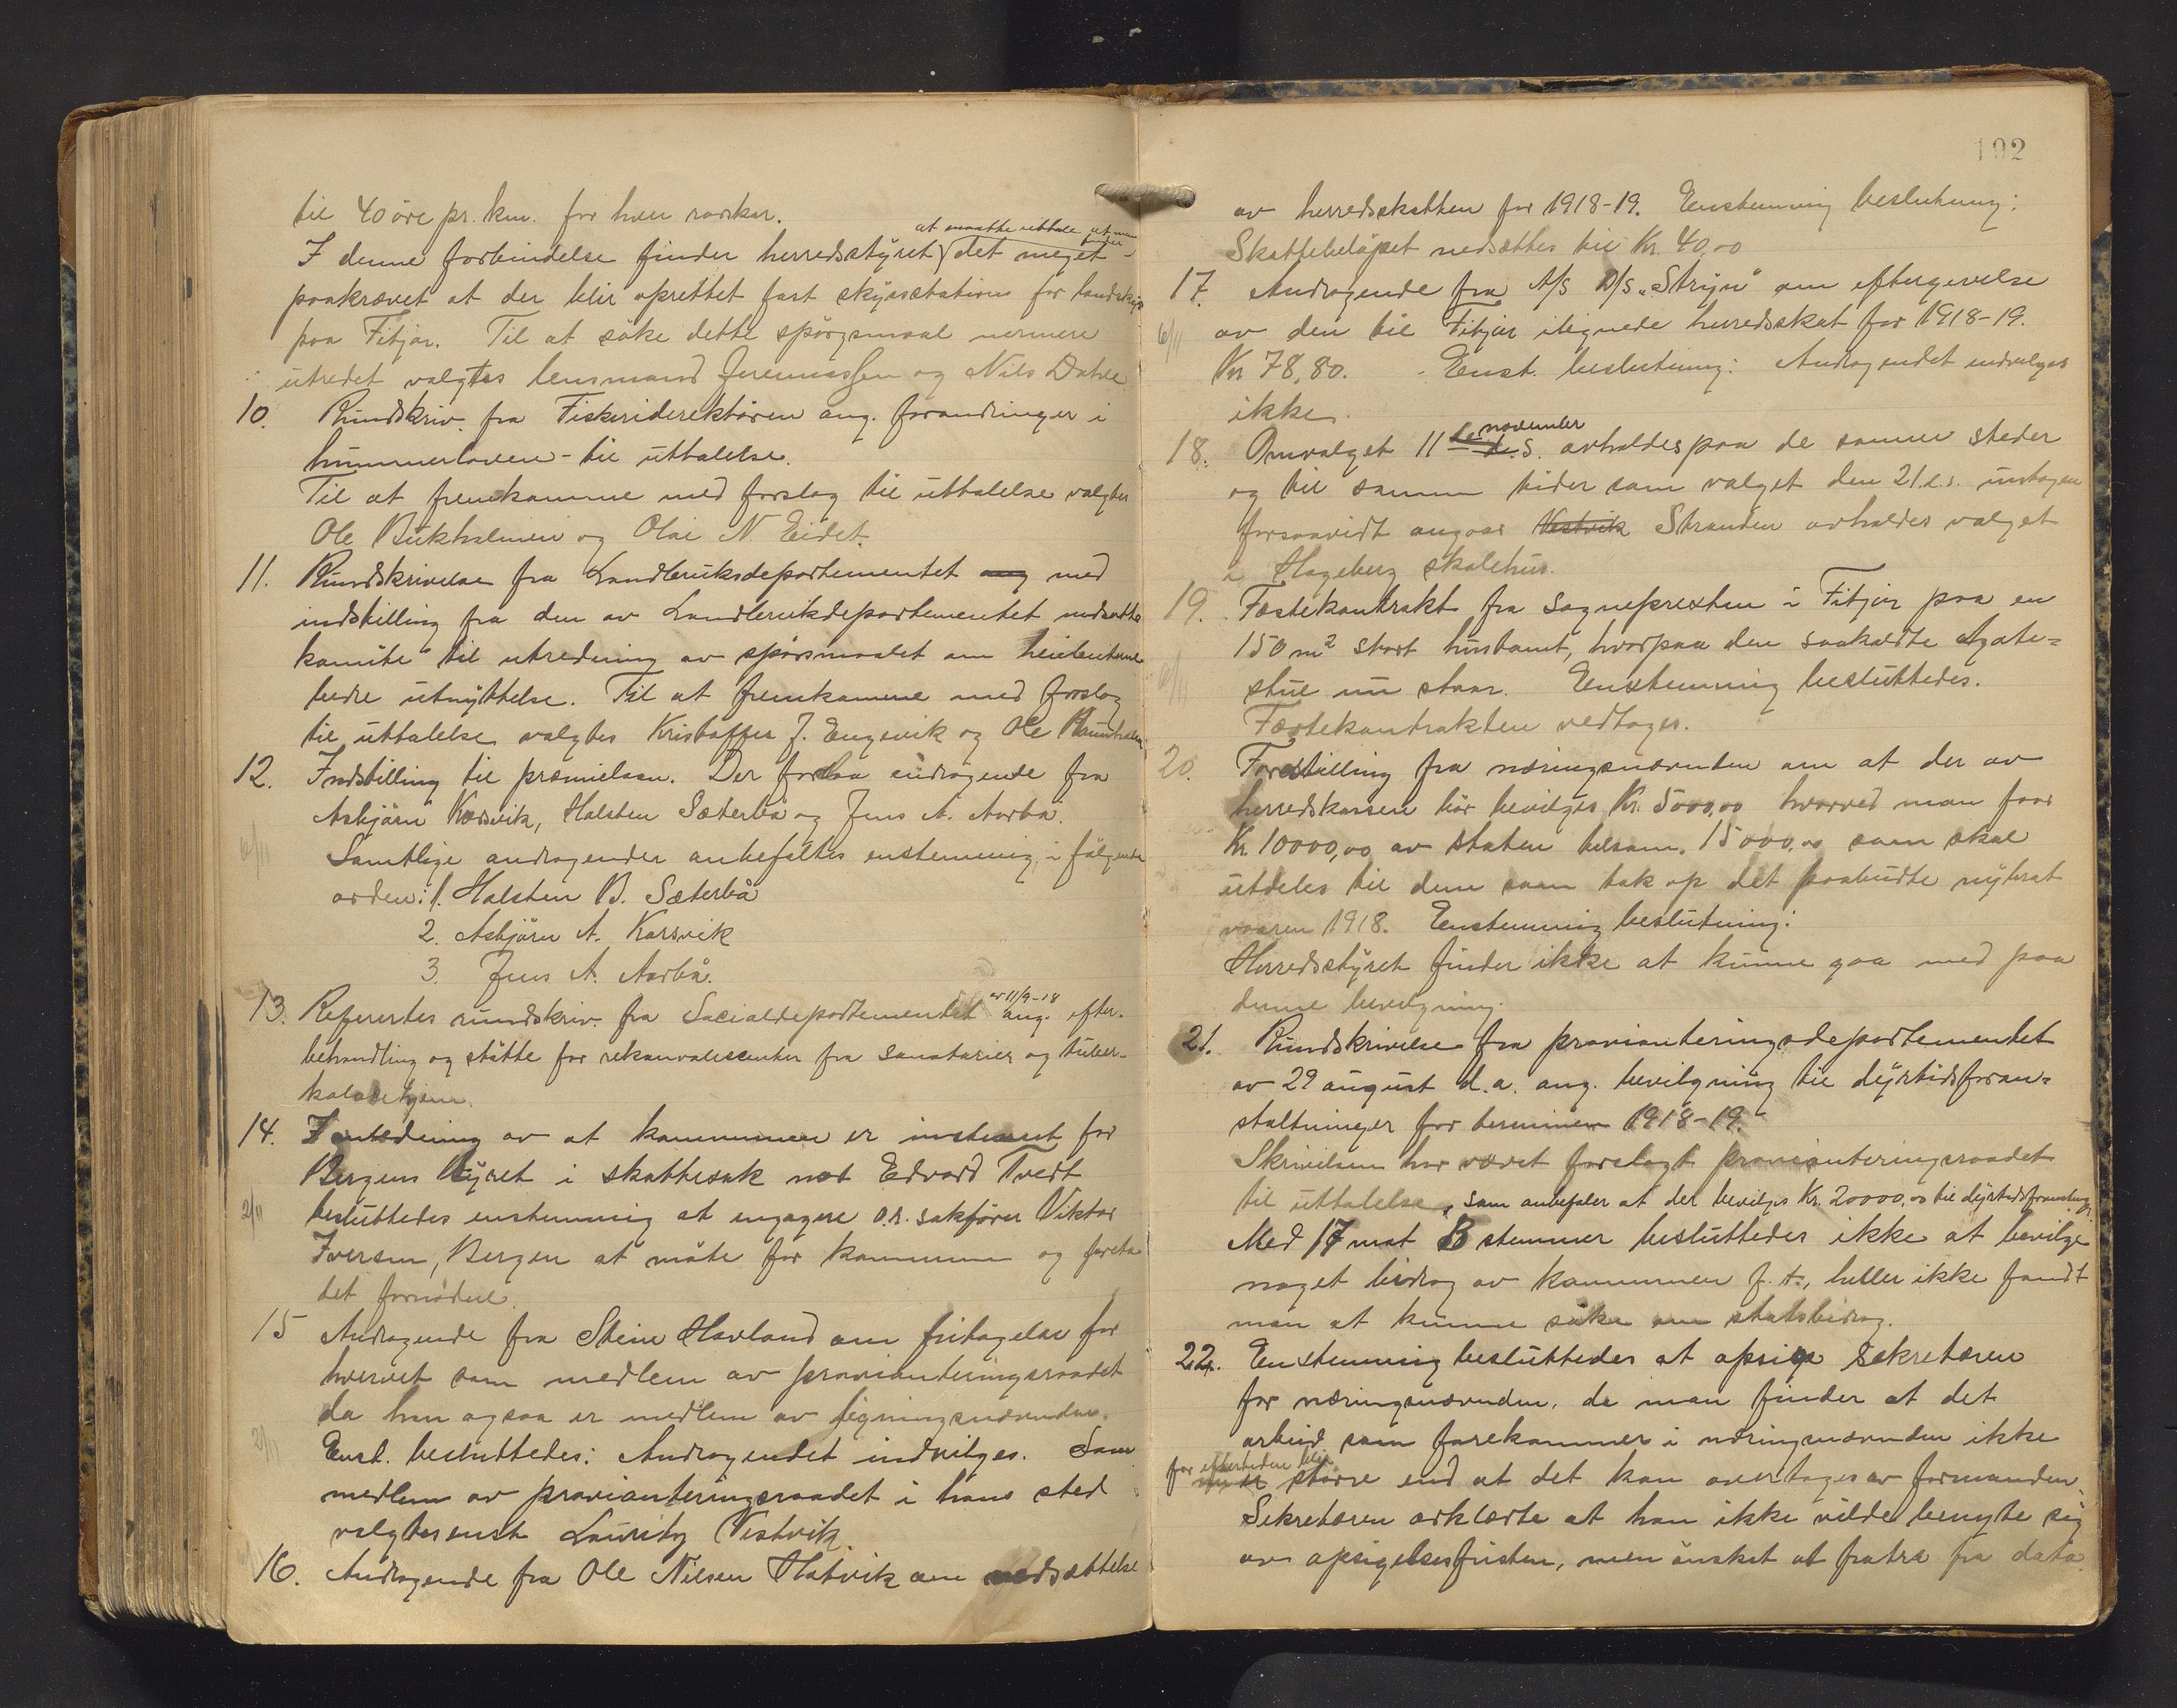 til 40 öre pr. km. for hver rorskar.
at maatte uttale at man finder
I denne forbindelse finder herredsstyret det meget
paakrævet at der blir oprettet fast skysstation for landskyss
paa Fitjar. Til at söke dette spörgsmaal nermere
utredet valgtes lensmand Jeremiassen og Nils Dahle
10. Rundskriv. fra Fiskeridirektören ang. forandringer i
hummerloven - til uttalelse.
Til at fremkomme med forslag til uttalelse valgtes
Ole Bukholmen og Olai N. Eidet.
11. Rundskrivelse fra Landbruksdepartementet ang med
indstilling fra den av Landbrukdepartementet nedsatte
komite til utredning av spörsmaalet om
bedre utnyttelse. Til at fremkomme med forslag
til uttalelse valgtes Kristoffer J. Engevik og Ole
12. Indstilling til præmielaan. Der forelaa andragende fra
Asbjörn Korsvik, Halsten Sæterbö og Jens A. Aarbö.
6/11
Samtlige andragender anbefaltes enstemmig i fölgende
orden: 1. Halsten B. Sæterbö
2. Asbjörn A. Korsvik
3. Jens A. Aarbö.
13. Refereertes rundskriv. fra Socialdepartementet av 11/9-18 ang. efter-
behandling og stötte for rekonvalescenter fra sanatorier og tuber-
kolosehjem.
14. I anledning av at kommunen er instevnt for
Bergens byret i skattesak mot Edvard Tvedt
2/11
besluttedes enstemmig at engagere o.r. sakförer Viktor
Iversen, Bergen at möte for kommunen og foreta
det fornödne.
15 Andragende fra Steine Havland om fritagelse for
hvervet som medlem av provianteringsraadet
da han ogsaa er medlem av ligningsnævnden.
2/11
Enst. besluttedes: Andragendet indvilges. Som
medlem av provianteringsraadet i hans sted
valgtes enst Lauritz Vestvik.
16. Andragende fra Ole Nilsen Hatvik om nedsættelse
102
av herredsskatten for 1918-19. Enstemmig beslutning:
Skattebelöpet nedsættes til Kr. 40,00
17. Andragende fra A/S D/S "Stryn" om eftergivelse
6/11
av den til Fitjar ilignede herredsskat for 1918-19.
Kr 78,80. - Enst. beslutning: Andragendet indvilges
ikke.
november
18. Omvalget 11 te d.s. avholdes paa de samme steder
og til samme tider som valget den 21.d.s. undtagen
forsaavidt angaar Vestvik Stranden avholdes valget
i Hageberg skolehus.
19. Fæstekontrakt fra sognepresten i Fitjar paa en
150 m² stort hustomt, hvorpaa den saakaldte Agate-
6/11
stue nu staar. Enstemmig besluttedes.
Fæstekontrakten vedtages.
20. Forestilling fra næringsnævnden om at der av
herredskassen bör bevilges Kr. 5000,00 hvorved man faar
Kr. 10000,00 av staten tilsam. 15000,00 som skal
utdeles til dem som tok op det paabudte nybrot
vaaren 1918. Enstemmig beslutning:
Herredsstyret finder ikke at kunne gaa med paa
denne bevilgning.
21. Rundskrivelse fra provianteringsdepartementet
av 29 august d.a. ang. bevilgning til dyrtidsforan-
staltninger for terminen 1918-19.
Skrivelsen har været forelagt provianteringsraadet
til uttalelse, som anbefaler at der bevilges Kr. 20000,00 til dyrtidsforanstaltninger.
Med 17 mot 3 stemmer besluttedes ikke at bevilge
noget bidrag av kommunen f.t., heller ikke fandt
man at kunne söke om statsbidrag.
22. Enstemmig besluttedes at opsige sekretæren
for næringsnævnden, da man finder at det
arbeid som forekommer i næringsnævnden ikke
for eftertiden blir
nu er större end at det kan overtages av formanden.
Sekretæren erklærte at han ikke vilde benyte sig
av opsigelsesfristen, men önsket at fratræ fra dato.